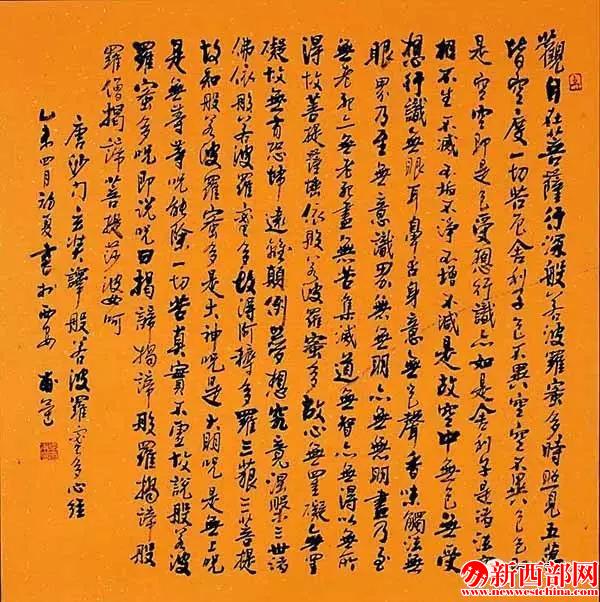 觀自在菩薩行深般若波羅蜜多時照見五蘊
皆空度一切苦厄舍利子色不異空空不異色色即
是空空即是色受想行識亦如是舍利子是諸法空
相不生不滅不垢不淨不增不減是故空中無色無受
想行識無眼耳鼻舌身意無色聲香味觸法無
眼界乃至無意識界無無明亦無無明盡乃至
無老死亦無老死盡無苦集滅道無智亦無得以無所
得故菩提薩埵依般若波羅蜜多故心無罣礙無罣
礙故無有恐怖遠離顛倒夢想究竟涅槃三世諸
佛依般若波羅蜜多故得阿耨多羅三藐三菩提
故知般若波羅蜜多是大神咒是大明咒是無上咒
是無等等咒能除一切苦真實不虛故說般若波
羅蜜多咒即說咒曰揭諦揭諦般羅揭諦般
羅僧揭諦菩提莎婆訶
唐沙門玄奘譯般若波羅蜜多心經
乙未四月初夏書於西安
新西部网
www.newwestchina.com